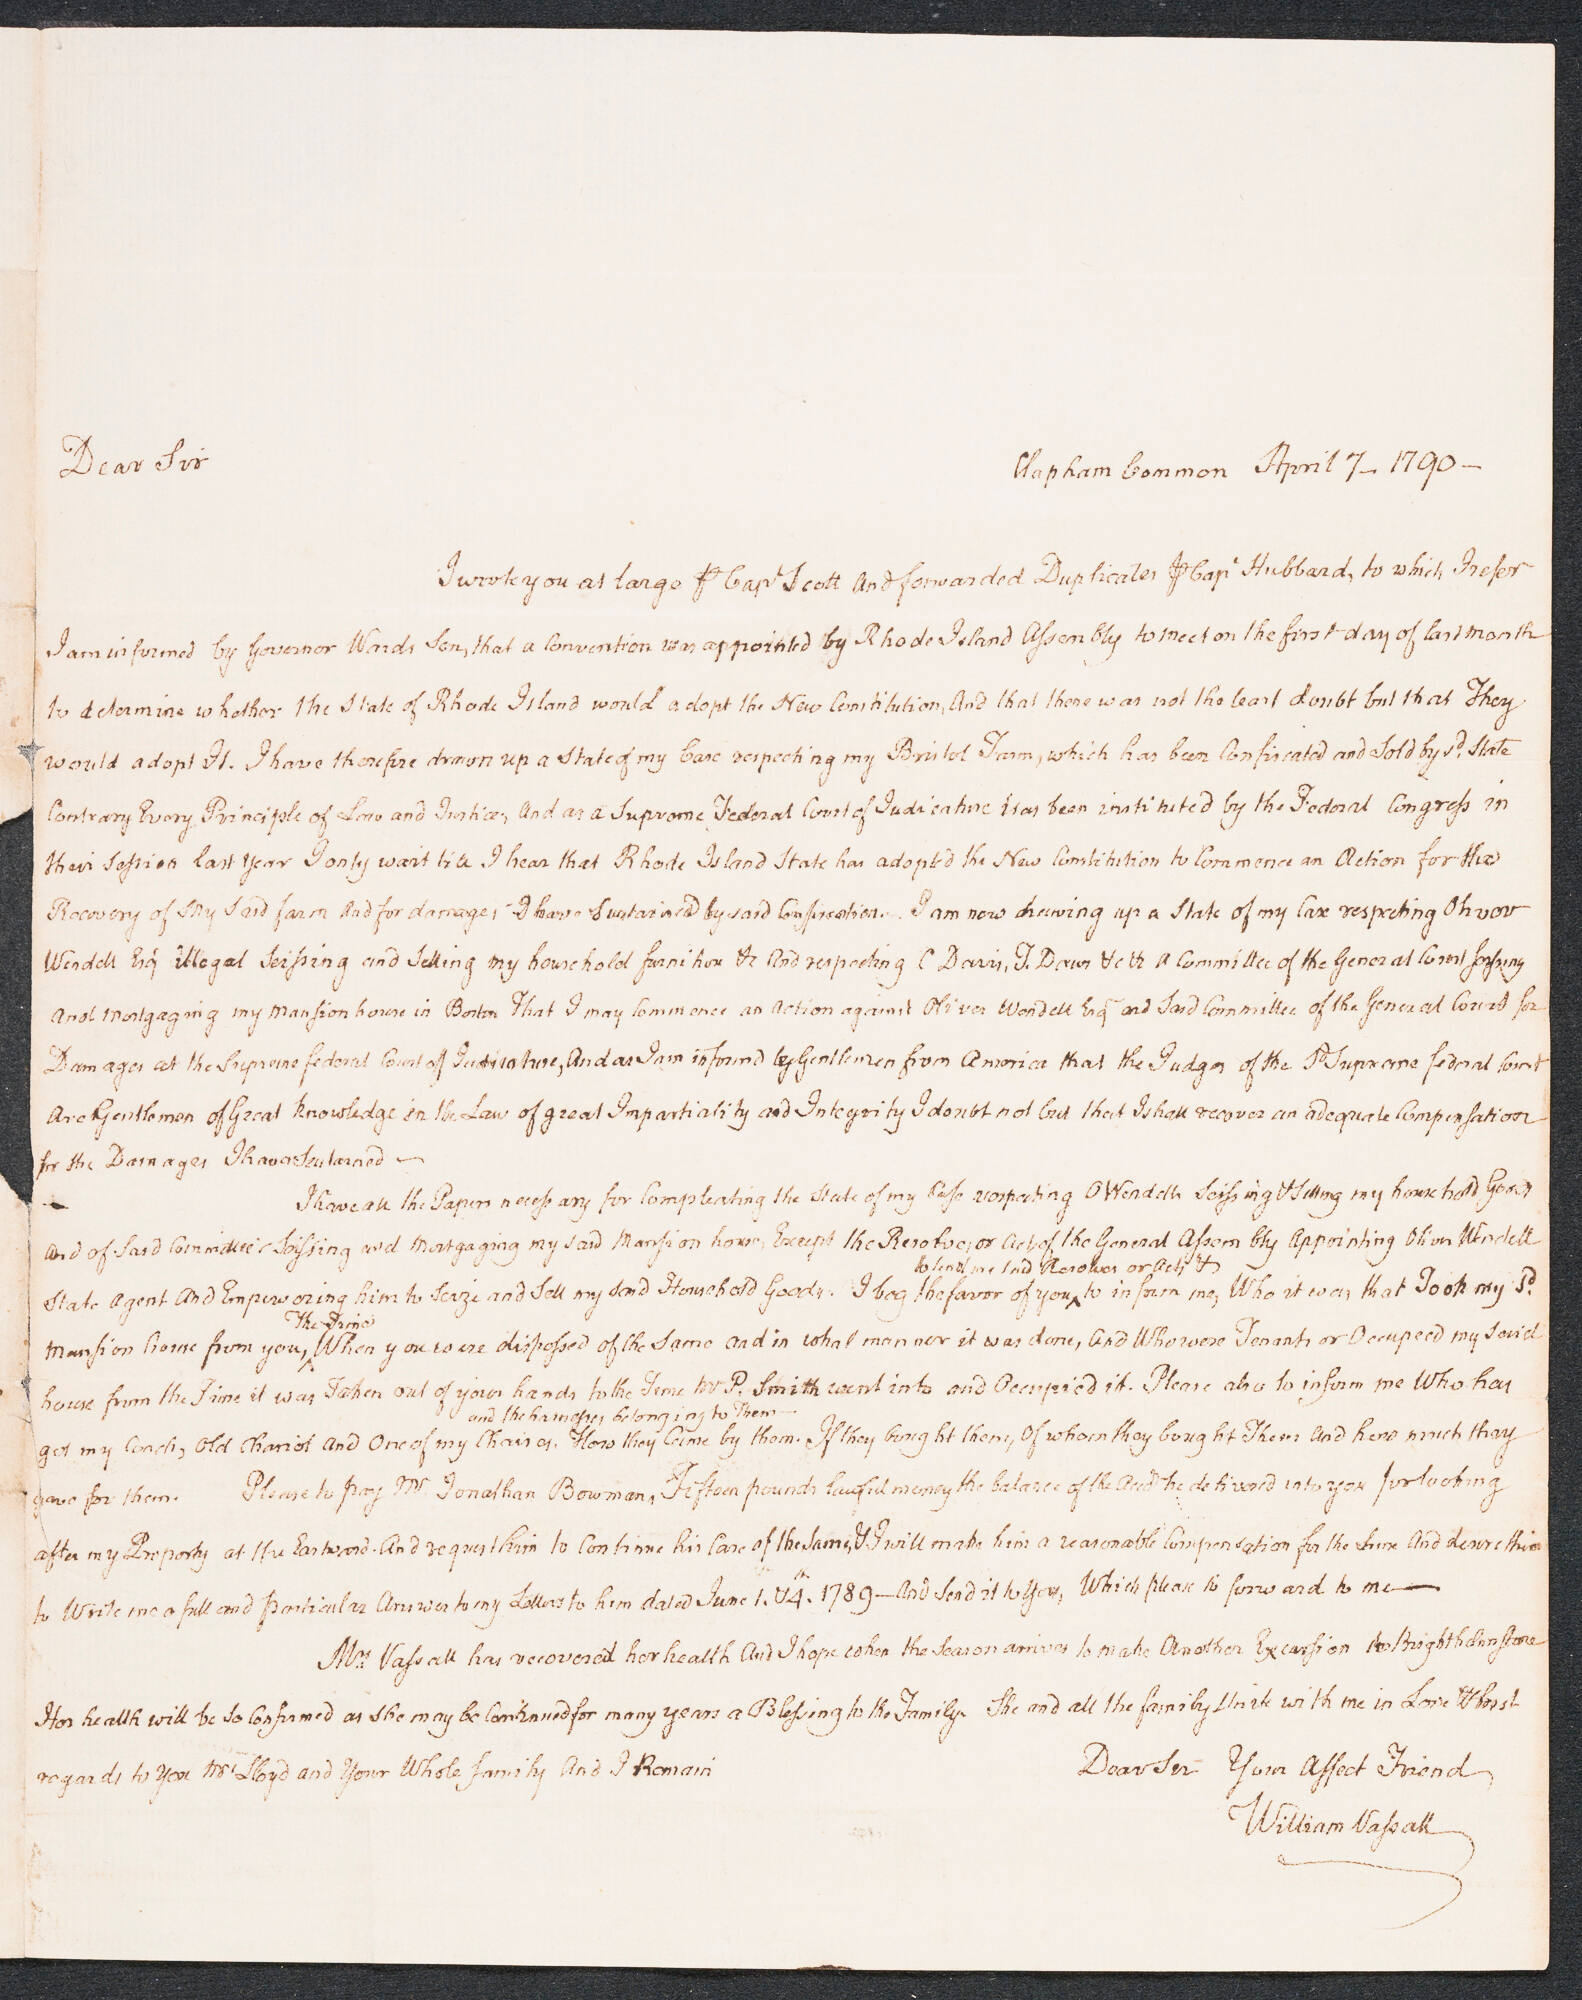 Dear Sir
Clapham Common April 7 - 1790 -
I wrote you at large ⅌ Capt Scott And forwarded Duplicates ⅌ Capt Hubbard, to which I refer
I am informed by Governor Wards Son, that a Convention was appointed by Rhode Island Assembly to meet on the first day of last month
to determine whether the State of Rhode Island would adopt the New Constitution, And that there was not the least doubt but that They
would adopt It. I have therefore drawn up a State of my Case respecting my Bristol Farm, which has been Confiscated and Sold by sd. State
Contrary Every Principle of Law and Justice, And as a Supreme Federal Court of Judicature has been instituted by the Federal Congress in
their Session last Year I only wait till I hear that Rhode Island State has adopted the New Constitution to Commence an Action for the
Recovery of my Said farm And for damages I have Sustained by said Confiscation. I am now drawing up a State of my Case respecting Oliver
Wendell Esqr illegal Seissing and Selling my household furniture &c And respecting C Davis, T. Daws &c &c a Committee of the General Court seissing
and mortgaging my mansion house in Boston That I may Commence an Action against Oliver Wendell Esqr and Said Committee of the General Court for
Damages at the Supreme federal Court of Judicature, And as I am informd by Gentlemen from America that the Judges of the sd Supreme federal Court
Are Gentlemen of Great Knowledge in the Law of great Impartiality and Integrity I doubt not but that I shall recover an adequate Compensation
for the Damages I have Sustained
I have all the Papers necessary for Compleating the State of my Case respecting O Wendells Seissing & Selling my household Goods
and of Said Committee's Seissing and Mortgaging my said Mansion house, Except the Resolve, or Act, of the General Assembly Appointing Oliver Wendell
to send me said Resolves or Acts &
State Agent And Empowering him to Seize and Sell my said Household Goods. I beg the favor of you ^ to inform me, Who it was that Took my Sd.
The Time
Mansion house from you, ^ When you were dispossed of the Same and in what manner it was done, And Who were Tenants or Occupied my Said
house from the Time it was Taken out of your hands to the Time Mr P. Smith went into and Occupied it. Please also to inform me Who has
and the harnesses belonging to Them
got my Coach, Old Chariot And One of my Chaises. How they Came by them. If they bought them, Of whom they bought Them And how much they
gave for them. Please to pay Mr. Jonathan Bowman, Fifteen pounds lawful money the balance of the Acct he delivered into you for looking
after my Property at the Eastward. And request him to Continue his Care of the Same, & I will make him a reasonable Compensation for the Same And desire him
to Write me a full and particular Answer to my Letters to him dated June 1. & 4th. 1789 - And Send it to You, Which please to forward to me
Mrs Vassall has recovered her health And I hope when the Season arrives to make Another Excursion to Brighthelmstone
Her health will be so Confirmed as She may be Continued for many years a Blessing to the Family. She and all the family Unite with me in Love & best
regards to You Mrs Lloyd and Your Whole family And I Remain
Dear Sir Your Affect Friend
William Vassall